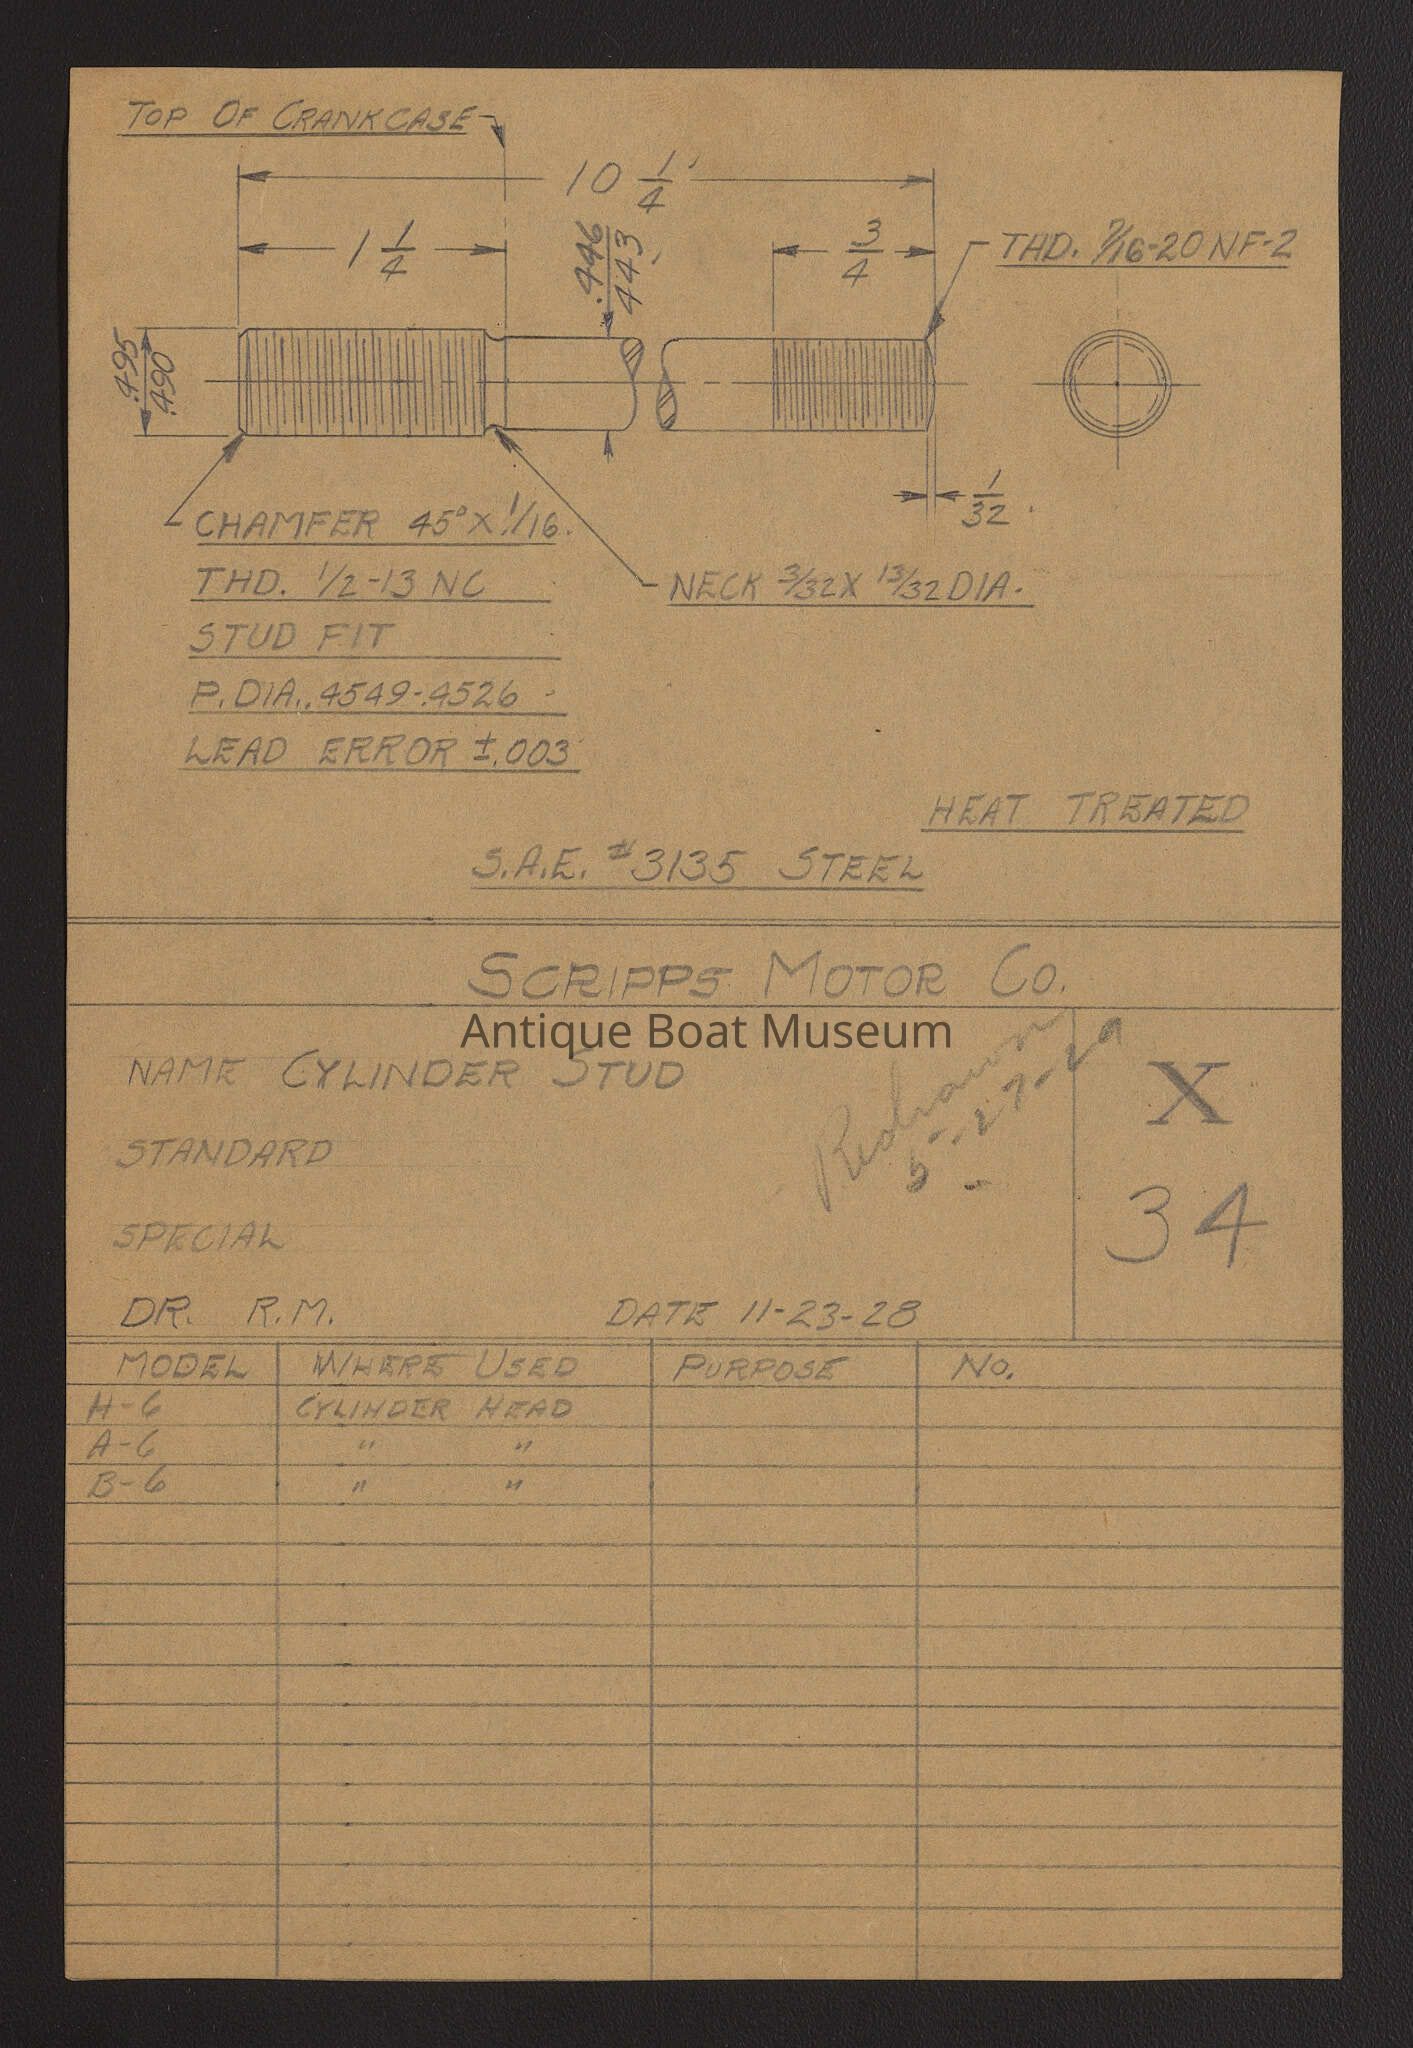 TOP OF CRANKCASE
10 1/4
1 1/4
.446
.443
3/4
THD. 7/16-20 NF-2
.495
.490
1/32
CHAMFER 45° X 1/16.
THD. 1/2-13 NC
NECK 3/32 X 13/32 DIA.
STUD FIT
P. DIA. .4549-.4526
LEAD ERROR ±.003
HEAT TREATED
S.A.E. #3135 STEEL
SCRIPPS MOTOR CO.
Antique Boat Museum
NAME CYLINDER STUD
Redrawn
5-27-29
X
34
STANDARD
SPECIAL
DR. R.M. DATE 11-23-28
MODEL WHERE USED PURPOSE NO.
H-6 CYLINDER HEAD
A-6 " "
B-6 " "